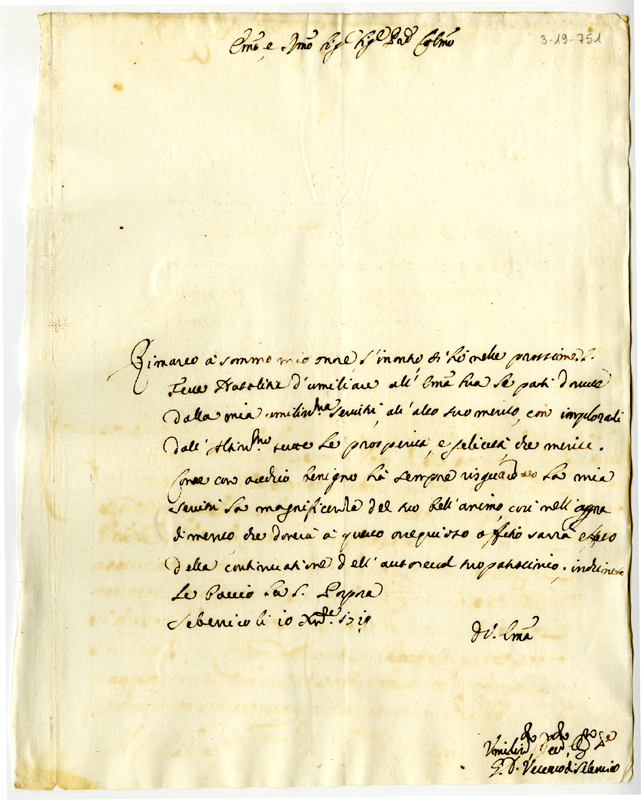 3-19-751
Emo, e Rmo Sig.r Sig.r Pad. Colmo
Rimarco à sommo mio onore, l'incontro di hò nelle prossime S.
Feste Natalitie d'umiliare all' Emza sua le parti dovute
dalla mia umilissma servitù, all' alto suo merito, con implorarli
dall' Altissmo tutte le prosperità, e felicità, che merita.
Come con occhio benigno hà sempre risguardato la mia
servitù la magnificenza del suo bell'animo, così nell'
di merito che dovrà à questo ossequioso offitio sarrà effetto
della continuatione dell' autoreuol suo patrocinio. inchinato
Le baccio la S. Porpora
Sebenico li 10 Xmbre. 1719
Di V. Emza
Umiliss
G. D. Vescovo di Sebenico